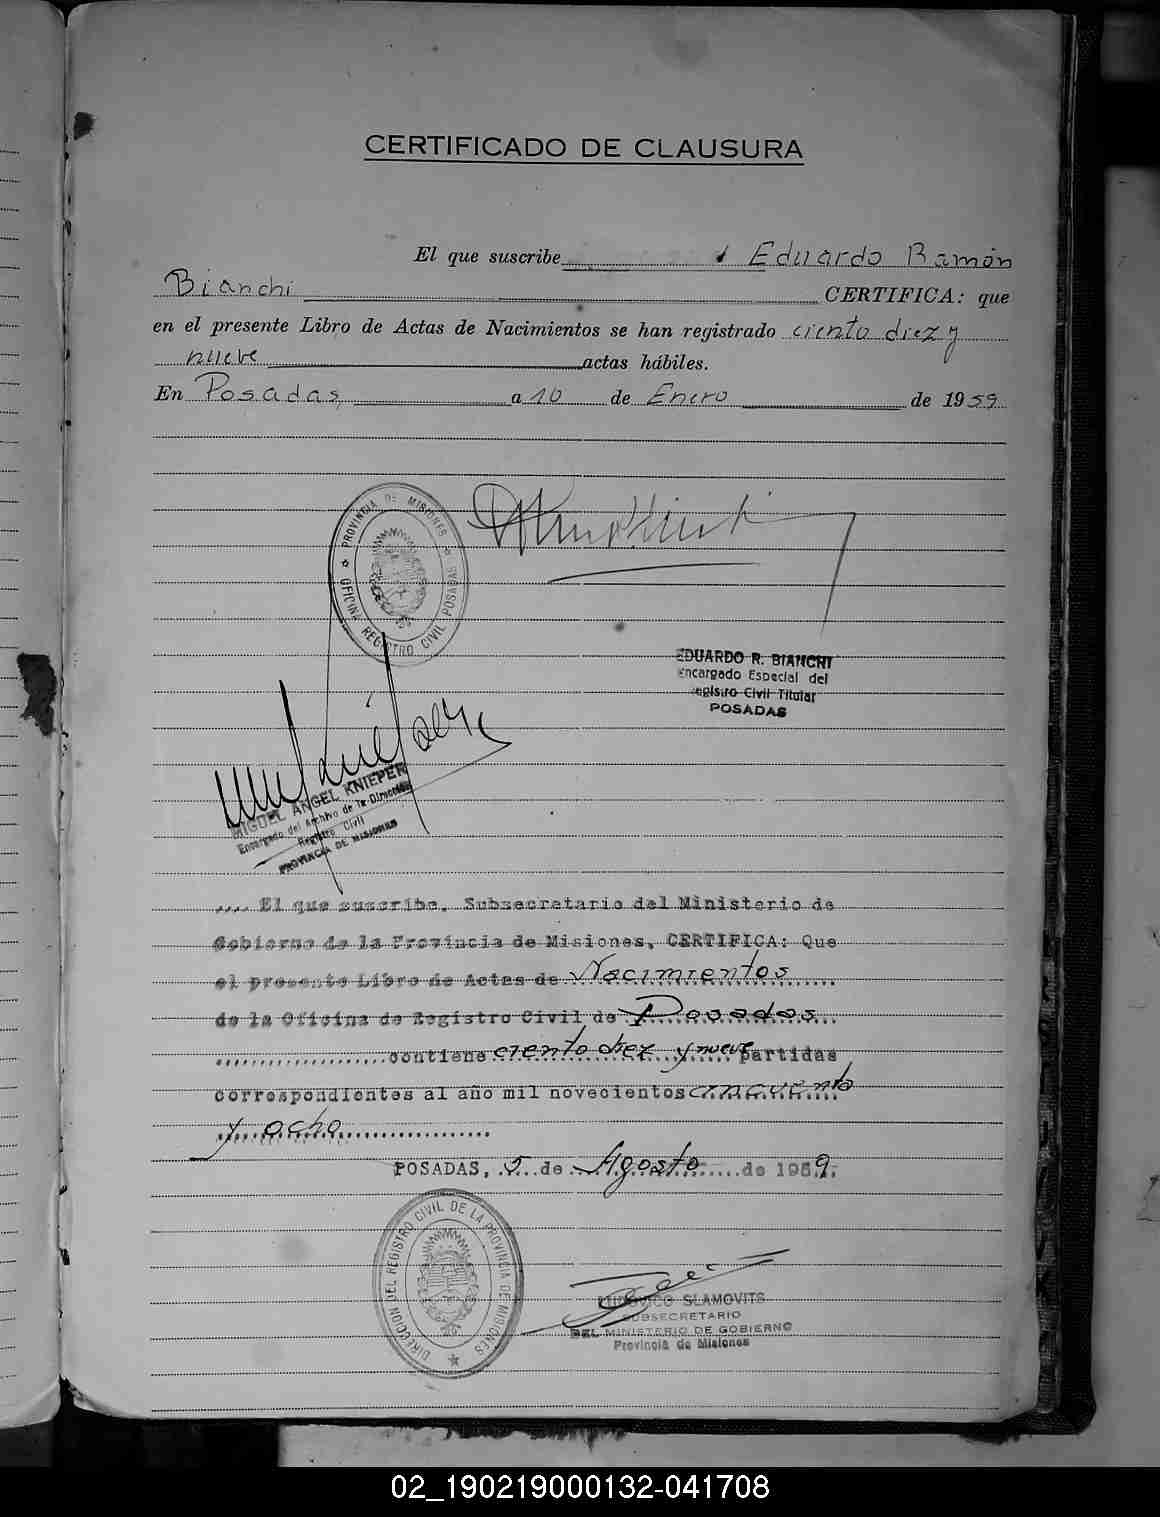 CERTIFICADO DE CLAUSURA
El que suscribe Eduardo Ramón
Bianchi CERTIFICA: que
en el presente Libro de Actas de Nacimientos se han registrado ciento diez y
nueve actas hábiles.
En Posadas, a 10 de Enero de 1959
PROVINCIA DE MISIONES
OFICINA REGISTRO CIVIL POSADAS
EDUARDO R. BIANCHI
Encargado Especial del
Registro Civil Titular
POSADAS
MIGUEL ANGEL KNIEPER
Encargado del Archivo de la Dirección
Registro Civil
PROVINCIA DE MISIONES
.... El que suscribe, Subsecretario del Ministerio de
Gobierno de la Provincia de Misiones, CERTIFICA: Que
el presente Libro de Actas de Nacimientos
de la Oficina de Registro Civil de Posadas
contiene ciento diez y nueve partidas
correspondientes al año mil novecientos cincuenta
y ocho
POSADAS, 5 de Agosto de 1959.
DIRECCION DEL REGISTRO CIVIL DE LA PROVINCIA DE MISIONES
LUDOVICO SLAMOVITS
SUBSECRETARIO
DEL MINISTERIO DE GOBIERNO
Provincia de Misiones
02_190219000132-041708